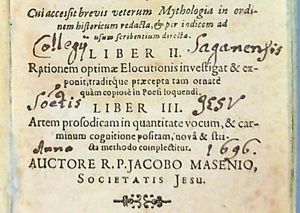 Cui accessit brevis veterum Mythologia in ordi-
nem historicum redacta, & per indicem ad
usum scribentium directa.
Collegij LIBER II. Saganensis
Rationem optimæ Elocutionis investigat & ex-
ponit, traditque præcepta tam ornatè
quàm copiosè in Poesi loquendi.
Socetis LIBER III. JESV
Artem prosodicam in quantitate vocum, & car-
minum cognitione positam, novâ & stri-
Anno cta methodo complectitur. 1696.
AUCTORE R. P. JACOBO MASENIO,
SOCIETATIS JESU.